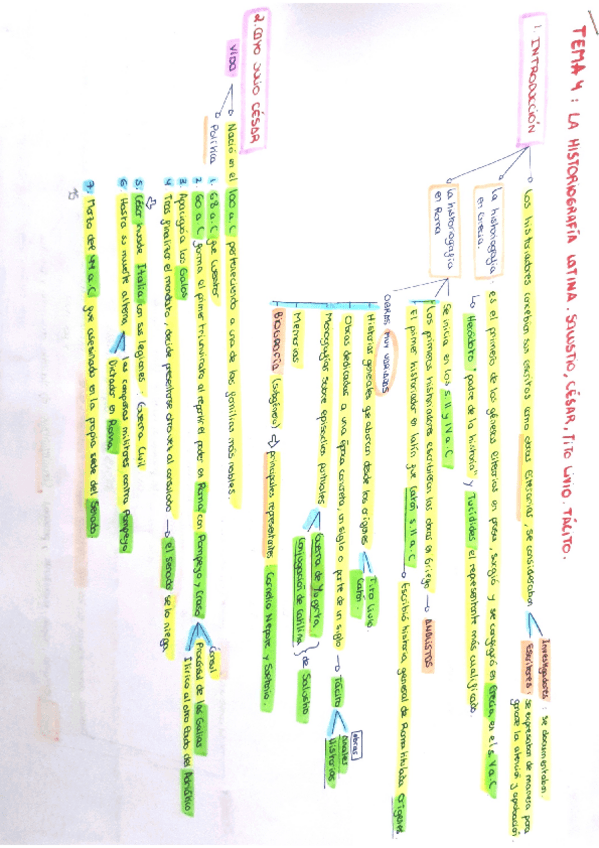 TEMA 4: LA HISTORIOGRAFÍA LATINA. SALUSTIO, CÉSAR, TITO LIVIO. TÁCITO.
1. INTRODUCCIÓN
Los historiadores concebían sus escritos como obras literarias, se consideraban
Investigadores: se documentaban
Escritores: se expresaban de manera para
ganarse la atención y aprobación.
la historiografía
en Grecia.
es el primero de los géneros literarios en prosa, surgió y se configuró en Grecia en el s. V a.C
Heródoto "padre de la historia" y Tucídides el representante más cualificado.
la historiografía
en Roma
Se inicia en los s. II y I V a.C
Los primeros historiadores escribieron las obras en Griego → ANALISTAS
El primer historiador en latín fue Catón s. II a.C → Escribió historia general de Roma titulada Orígenes.
OBRAS MUY VARIADAS
Historias generales que abarcan desde los orígenes
Tito Livio.
Catón.
Obras dedicadas a una época concreta, un siglo o parte de un siglo → Tácito
obras
Anales
Historias
Monografías sobre episodios puntuales
Guerra de Yugurta
Conjuración de Catilina
de Salustio
Memorias
BIOGRAFÍA (subgénero) ⇒ principales representantes Cornelio Nepote y Suetonio.
2. CAYO JULIO CÉSAR
VIDA
Nació en el 100 a.C perteneciendo a una de las familias más nobles.
Política
1. 68 a.C fue cuestor
2. 60 a.C forma el primer triunvirato al repartir el poder en Roma con Pompeyo y Craso
Cónsul
Procónsul de las Galias
Ilírico al otro lado del Adriático
3. Apacigua a los Galos
4. Tras finalizar el mandato, decide presentarse otra vez al consulado → el senado se lo niega
5. César invade Italia con sus legiones: Guerra Civil
6. Hasta su muerte alterna
las campañas militares contra Pompeyo
Dictador en Roma
7. Marzo del 44 a.C fue asesinado en la propia sede del Senado.
15